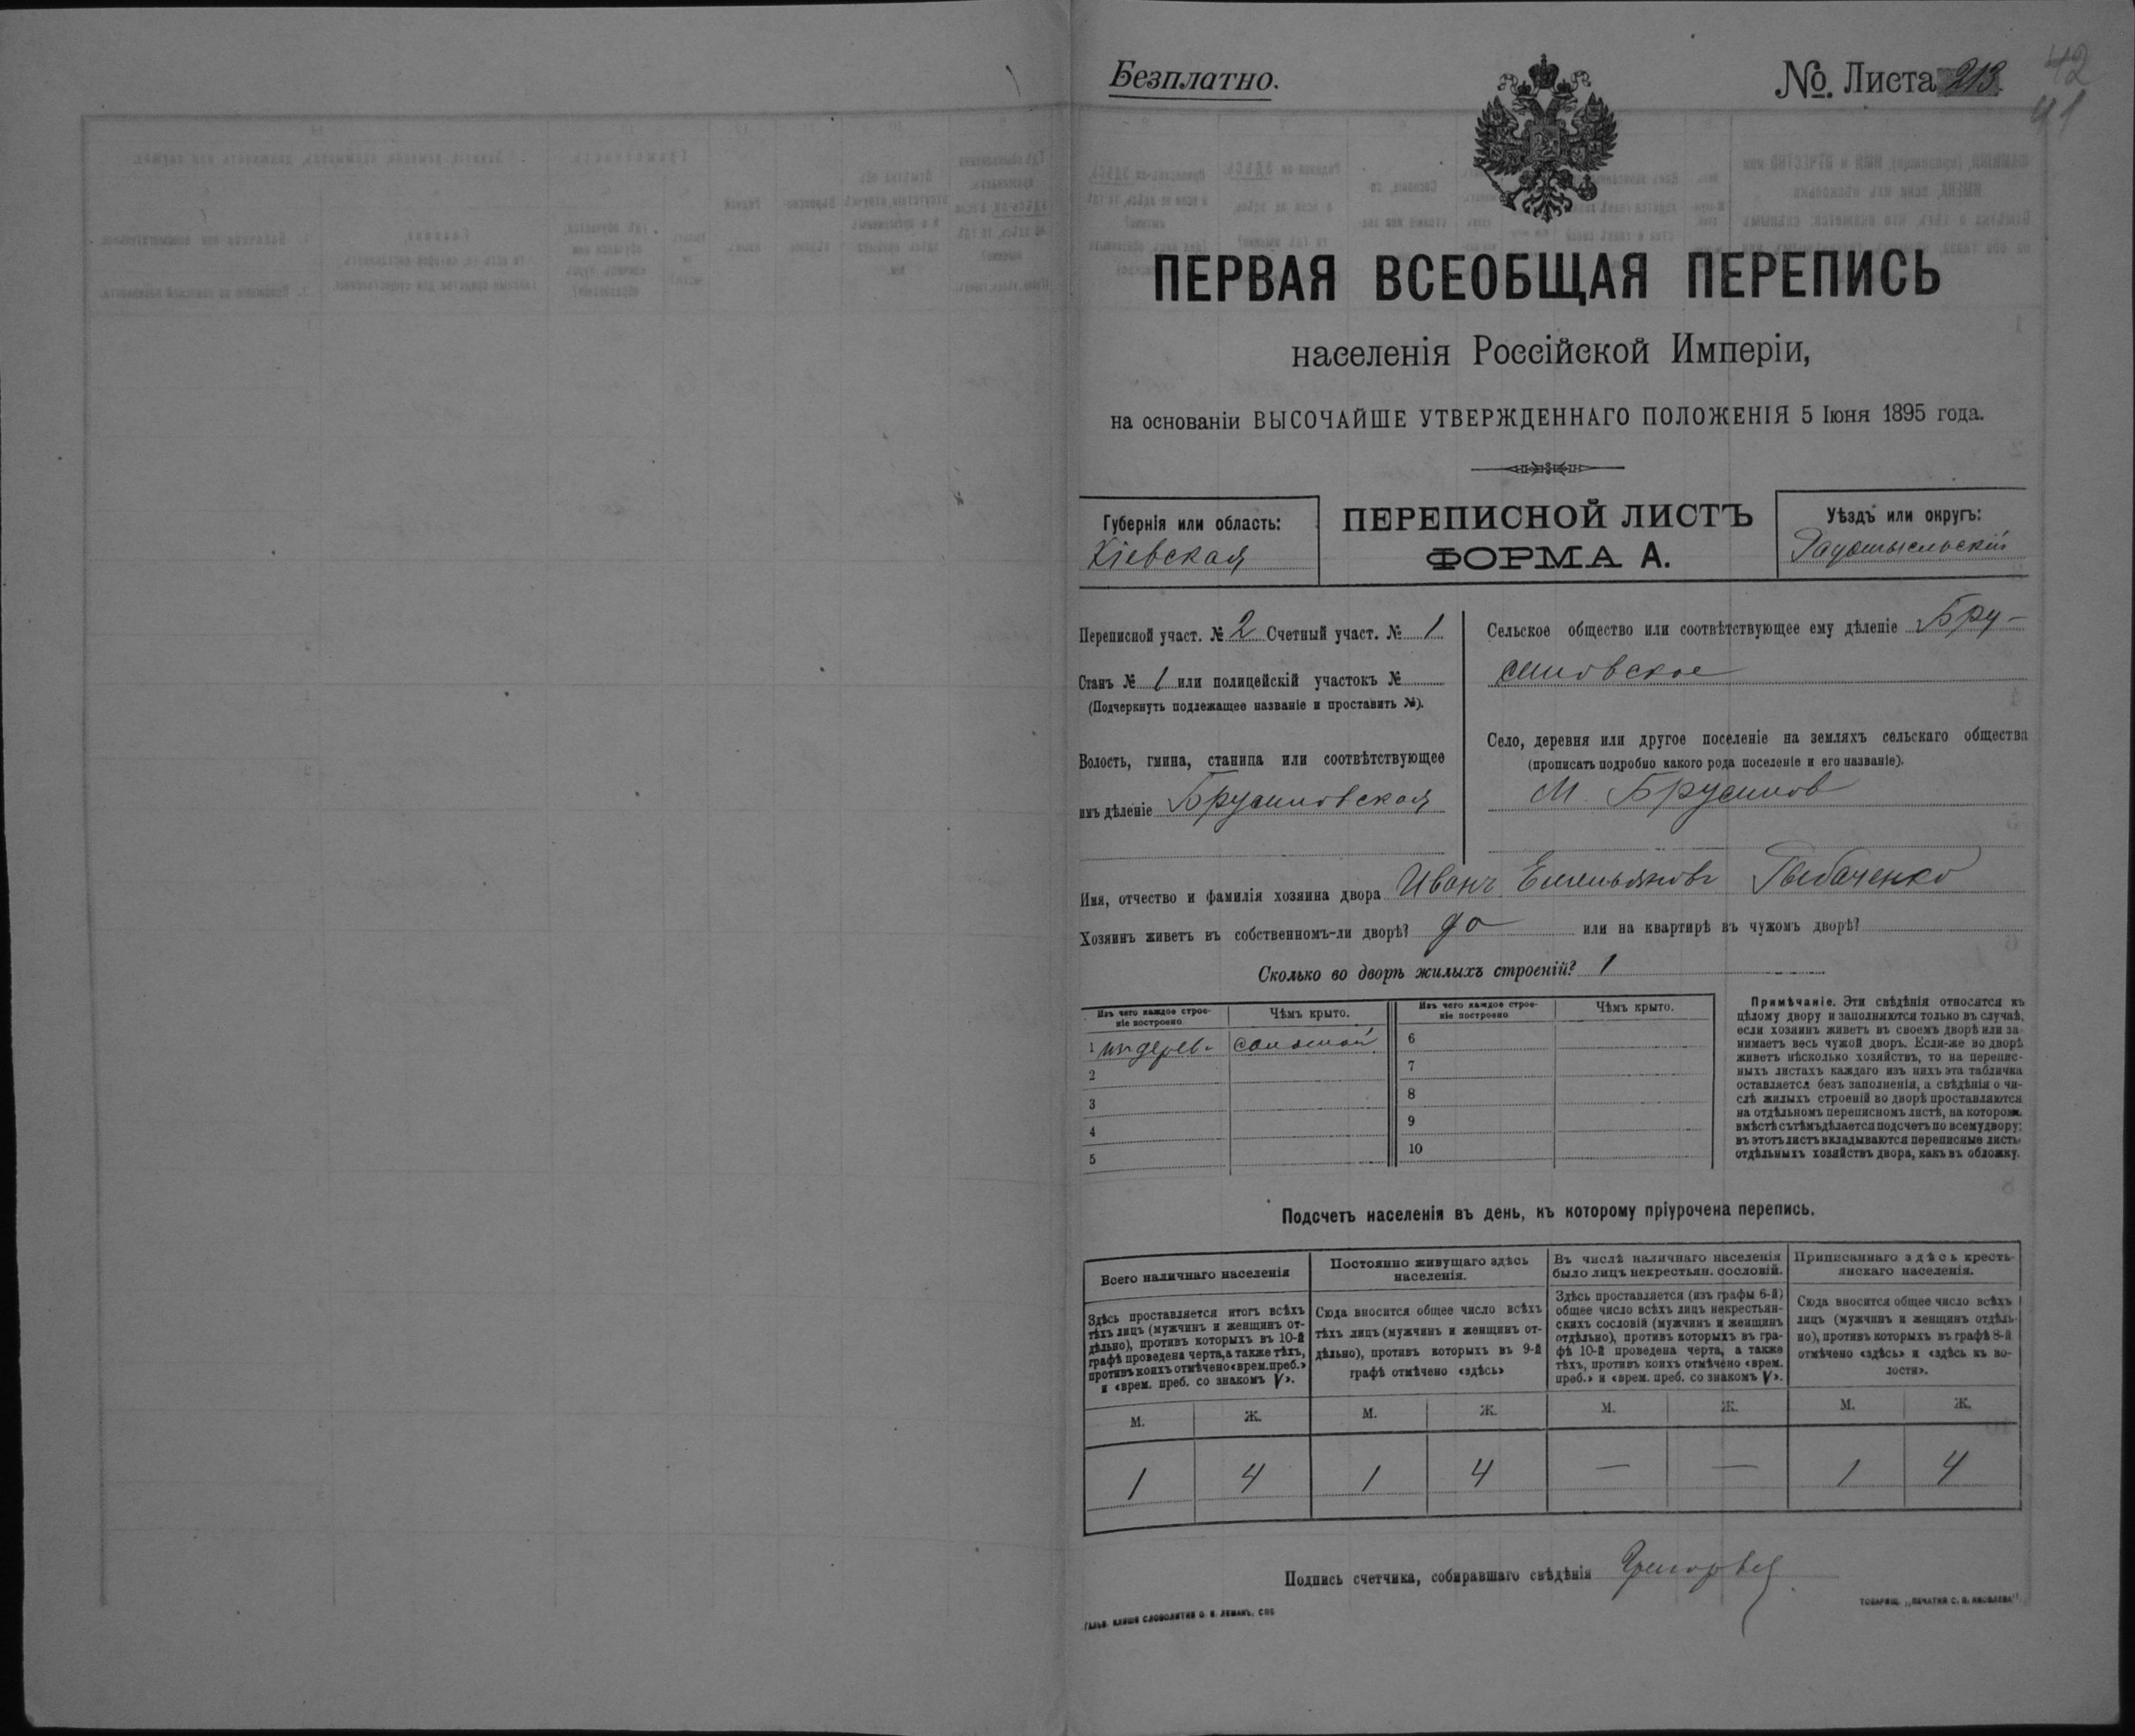 Безплатно.
№. Листа 213.
42
41
ПЕРВАЯ ВСЕОБЩАЯ ПЕРЕПИСЬ
населенія Россійской Имперіи,
на основаніи ВЫСОЧАЙШЕ УТВЕРЖДЕННАГО ПОЛОЖЕНІЯ 5 Іюня 1895 года.
Губернія или область:
Кіевская
ПЕРЕПИСНОЙ ЛИСТЪ
ФОРМА А.
Уѣздъ или округъ:
Радомысльскій
Переписной участ. № 2 Счетный участ. № 1
Станъ № 1 или полицейскій участокъ №
(Подчеркнуть подлежащее названіе и проставить №).
Волость, гмина, станица или соотвѣтствующее
имъ дѣленіе Брусиловская
Сельское общество или соотвѣтствующее ему дѣленіе Бру-
силовское
Село, деревня или другое поселеніе на земляхъ сельскаго общества
(прописать подробно какого рода поселеніе и его названіе).
М. Брусилов
Имя, отчество и фамилія хозяина двора Иванъ Емельяновъ Рыбаченко
Хозяинъ живетъ въ собственномъ-ли дворѣ? да или на квартирѣ въ чужомъ дворѣ?
Сколько во дворѣ жилыхъ строеній? 1
Изъ чего каждое строе-
ніе построено
Чѣмъ крыто.
Изъ чего каждое строе-
ніе построено
Чѣмъ крыто.
1 изъ дерев. соломой
2
3
4
5
6
7
8
9
10
Примѣчаніе. Эти свѣдѣнія относятся къ
цѣлому двору и заполняются только въ случаѣ,
если хозяинъ живетъ въ своемъ дворѣ или за-
нимаетъ весь чужой дворъ. Если-же во дворѣ
живетъ нѣсколько хозяйствъ, то на перепис-
ныхъ листахъ каждаго изъ нихъ эта табличка
оставляется безъ заполненія, а свѣдѣнія о чи-
слѣ жилыхъ строеній во дворѣ проставляются
на отдѣльномъ переписномъ листѣ, на которомъ
вмѣстѣ съ тѣмъ дѣлается подсчетъ по всему двору;
въ этотъ листъ вкладываются переписные листы
отдѣльныхъ хозяйствъ двора, какъ въ обложку.
Подсчетъ населенія въ день, къ которому пріурочена перепись.
Всего наличнаго населенія
Здѣсь проставляется итогъ всѣхъ
тѣхъ лицъ (мужчинъ и женщинъ от-
дѣльно), противъ которыхъ въ 10-й
графѣ проведена черта, а также тѣхъ,
противъ коихъ отмѣчено «врем. преб.»
и «врем. преб. со знакомъ V».
Постоянно живущаго здѣсь
населенія.
Сюда вносится общее число всѣхъ
тѣхъ лицъ (мужчинъ и женщинъ от-
дѣльно), противъ которыхъ въ 9-й
графѣ отмѣчено «здѣсь»
Въ числѣ наличнаго населенія
было лицъ некрестьян. сословій.
Здѣсь проставляется (изъ графы 6-й)
общее число всѣхъ лицъ некрестьян-
скихъ сословій (мужчинъ и женщинъ
отдѣльно), противъ которыхъ въ гра-
фѣ 10-й проведена черта, а также
тѣхъ, противъ коихъ отмѣчено «врем.
преб.» и «врем. преб. со знакомъ V».
Приписаннаго здѣсь кресть-
янскаго населенія.
Сюда вносится общее число всѣхъ
лицъ (мужчинъ и женщинъ отдѣль-
но), противъ которыхъ въ графѣ 8-й
отмѣчено «здѣсь» и «здѣсь къ во-
лости».
М. Ж. М. Ж. М. Ж. М. Ж.
1 4 1 4 — — 1 4
Подпись счетчика, собиравшаго свѣдѣнія
ГАЛЬВ. КЛИШЕ СЛОВОЛИТНИ О. И. ЛЕМАНЪ, СПБ
ТОВАРИЩ. „ПЕЧАТНЯ С. П. ЯКОВЛЕВА"